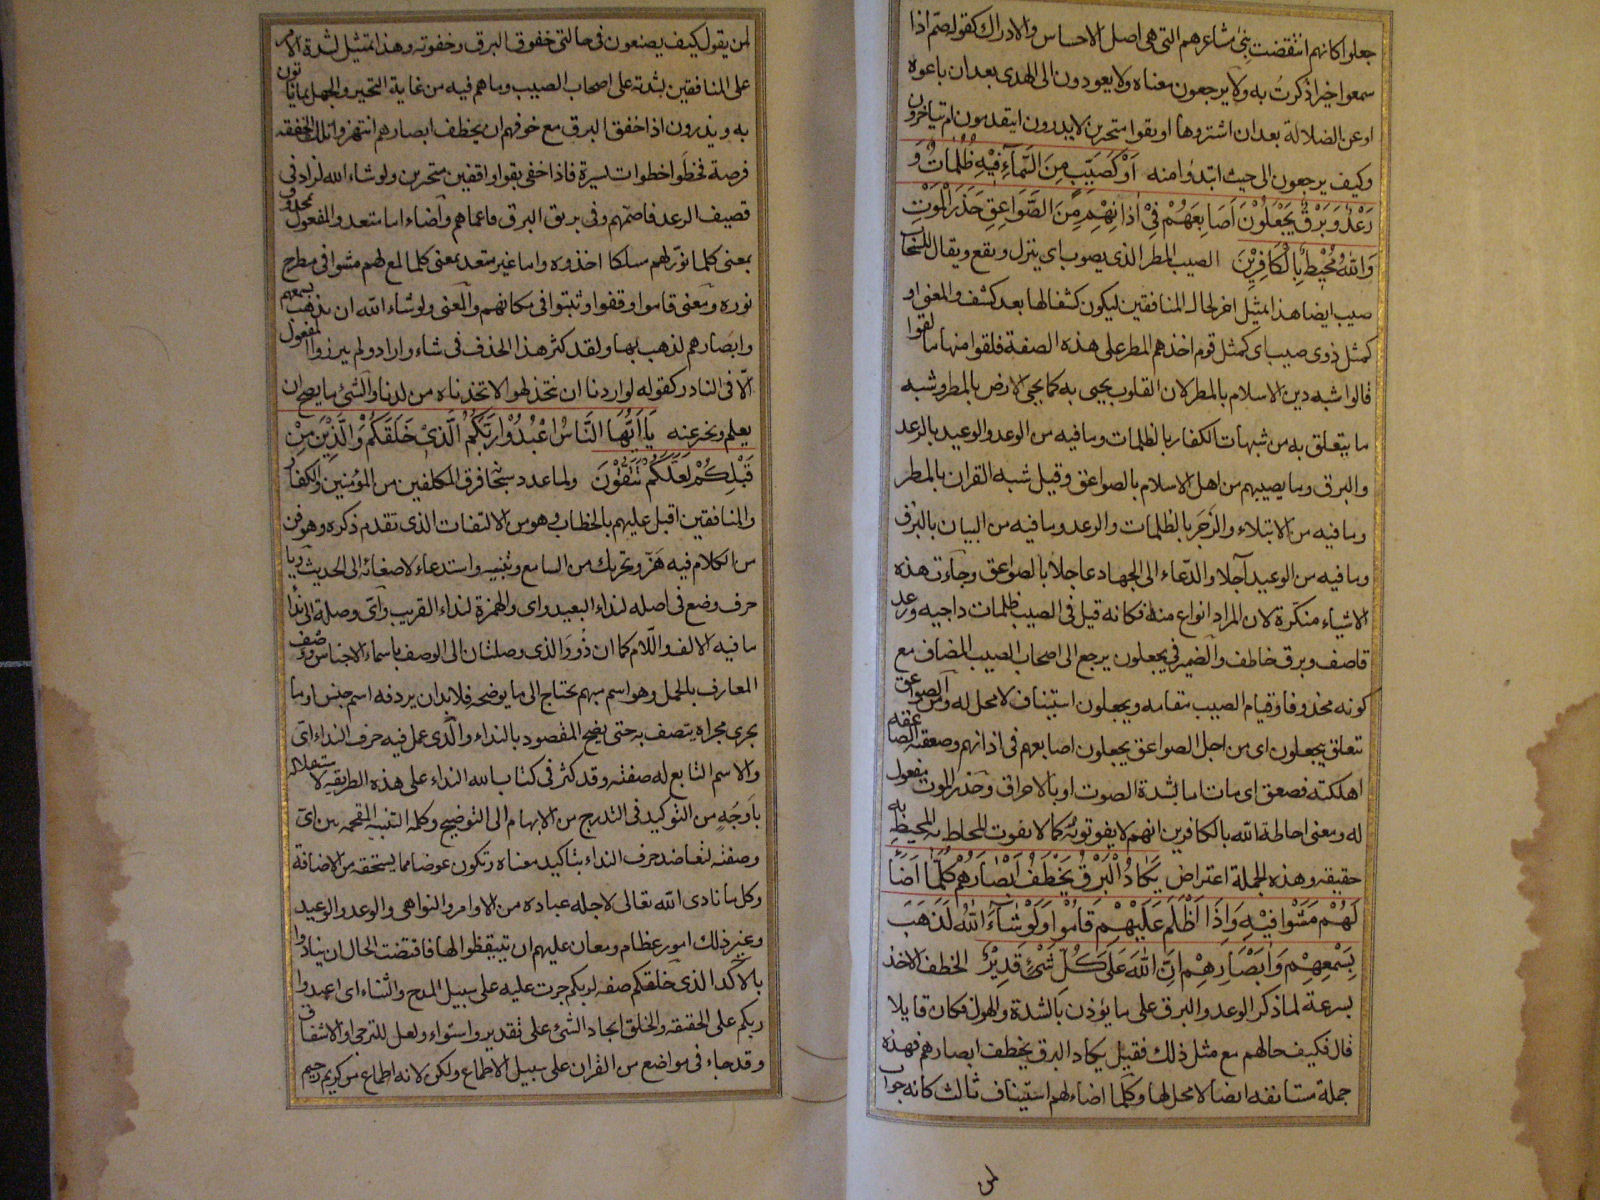 جعلوا كانهم انتقضت بنى مشاعرهم التى هى اصل الاحساس والادراك كقوله صم اذا
سمعوا خيرا ذكرت به ولا يرجعون معناه ولا يعودون الى الهدى بعد ان باعوه
او عن الضلالة بعد ان اشتروها او بقوا متحيرين لا يدرون ايتقدمون ام يتاخرون
وكيف يرجعون الى حيث ابتدؤا منه اَوْ كَصَيِّبٍ مِنَ السَّمَآءِ فِيْهِ ظُلُمَاتٌ وَ
رَعْدٌ وَبَرْقٌ يَجْعَلُوْنَ اَصَابِعَهُمْ فِىْ اٰذَانِهِمْ مِنَ الصَّوَاعِقِ حَذَرَ الْمَوْتِ
وَاللّٰهُ مُحِيْطٌ بِالْكَافِرِيْنَ الصيب المطر الذى يصوب اى ينزل ويقع ويقال للسحاب
صيب ايضا هذا تمثيل اخر لحال المنافقين ليكون كشفا لها بعد كشف والمعنى او
كمثل ذوى صيب اى كمثل قوم اخذهم المطر على هذه الصفة فلقوا منها ما لقوا
قالوا شبه دين الاسلام بالمطر لان القلوب يحيى به كما يحيى الارض بالمطر وشبه
ما يتعلق به من شبهات الكفار بالظلمات وما فيه من الوعد والوعيد بالرعد
والبرق وما يصيبهم من اهل الاسلام بالصواعق وقيل شبه القران بالمطر
وما فيه من الابتلاء والزجر بالظلمات والرعد وما فيه من البيان بالبرق
وما فيه من الوعيد آجلا والدعاء الى الجهاد عاجلا بالصواعق وجاءت هذه
الاشياء منكرة لان المراد انواع منها فكانه قيل فى الصيب ظلمات داجيه ورعد
قاصف وبرق خاطف والضمير فى يجعلون يرجع الى اصحاب الصيب المضاف مع
كونه محذوفا وقيام الصيب مقامه ويجعلون استيناف لا محل له ومن الصواعق
تتعلق بيجعلون اى من اجل الصواعق يجعلون اصابعهم فى اذانهم وصعقته الصاعقه
اهلكته فصعق اى مات اما بشدة الصوت او بالاحراق وحذر الموت مفعول
له ومعنى احاطة الله بالكافرين انهم لا يفوتونه كما لا يفوت المحاط به المحيط به
حقيقه وهذه الجملة اعتراض يَكَادُ الْبَرْقُ يَخْطَفُ اَبْصَارَهُمْ كُلَّمَا اَضَآءَ
لَهُمْ مَشَوْا فِيْهِ وَاِذَا اَظْلَمَ عَلَيْهِمْ قَامُوْا وَلَوْ شَآءَ اللّٰهُ لَذَهَبَ
بِسَمْعِهِمْ وَاَبْصَارِهِمْ اِنَّ اللّٰهَ عَلٰى كُلِّ شَىْءٍ قَدِيْرٌ الخطف الاخذ
بسرعة لما ذكر الوعد والبرق على ما يؤذن بالشدة والهول فكان قايلا
قال فكيف حالهم مع مثل ذلك فقيل يكاد البرق يخطف ابصارهم فهذه
جملة مستانفه ايضا لا محل لها وكلما اضاء لهم استيناف ثالث كانه جواب
لمن
لمن يقول كيف يصنعون فى حالتى خفوق البرق وخفوته وهذا تمثيل لشدة الامر
على المنافقين بشدته على اصحاب الصيب وما هم فيه من غاية التحير والجهل بما ياتون
به ويذرون اذا خفق البرق مع خوفهم ان يخطف ابصارهم انتهزوا تلك الخفقه
فرصة فخطوا خطوات يسيرة فاذا خفى بقوا واقفين متحيرين ولو شاء الله لزاد فى
قصيف الرعد فاصمهم وفى بريق البرق فاعماهم واضاء اما متعد والمفعول محذوف
بمعنى كلما نور لهم مسلكا اخذوه واما غير متعد بمعنى كلما لمع لهم مشوا فى مطرح
نوره ومعنى قاموا وقفوا وثبتوا فى مكانهم والمعنى ولو شاء الله ان يذهب بسمعهم
وابصارهم لذهب بهما ولقد كثر هذا الحذف فى شاء واراد ولم يبرزوا المفعول
الا فى النادر كقوله لو اردنا ان نتخذ لهوا لاتخذناه من لدنا والشئ ما يصح ان
يعلم ويخبر عنه يَا اَيُّهَا النَّاسُ اعْبُدُوْا رَبَّكُمُ الَّذِىْ خَلَقَكُمْ وَالَّذِيْنَ مِنْ
قَبْلِكُمْ لَعَلَّكُمْ تَتَّقُوْنَ ولما عدد سبحا فرق المكلفين من المؤمنين والكفار
والمنافقين اقبل عليهم بالخطاب وهو من الالتفات الذى تقدم ذكره وهو فن
من الكلام فيه هز وتحريك من السامع وتنبيه واستدعاء لاصغائه الى الحديث ويا
حرف وضع فى اصله لنداء البعيد واى والهمزة لنداء القريب واى وصلة الى ندا
ما فيه الالف واللام كما ان ذو والذى وصلتان الى الوصف باسماء الاجناس ووصف
المعارف بالجمل وهو اسم مبهم يحتاج الى ما يوضحه فلا بد ان يردفه اسم جنس او ما
يجرى مجراه يتصف به حتى يصح المقصود بالنداء والذى عمل فيه حرف النداء اى
والاسم التابع له صفته وقد كثر فى كتاب الله النداء على هذه الطريقه لاستقلاله
باوجه من التوكيد فى التدرج من الابهام الى التوضيح وكلمة التنبيه المقحمه بين اى
وصفته لتعاضد حرف النداء بتاكيد معناه وتكون عوضا مما يستحقه من الاضافة
وكل ما نادى الله تعالى لاجله عباده من الاوامر والنواهى والوعد والوعيد
وغير ذلك امور عظام ومعان عليهم ان يتيقظوا لها فاقتضت الحال ان ينادوا
بالاكد الذى خلقكم صفه لربكم جرت عليه على سبيل المدح والثناء اى اعبدوا
ربكم على الحقيقه والخلق ايجاد الشئ على تقدير واستواء ولعل للترجى او الاشفاق
وقد جاء فى مواضع من القران على سبيل الاطماع ولكن لانه اطماع من كريم رحيم